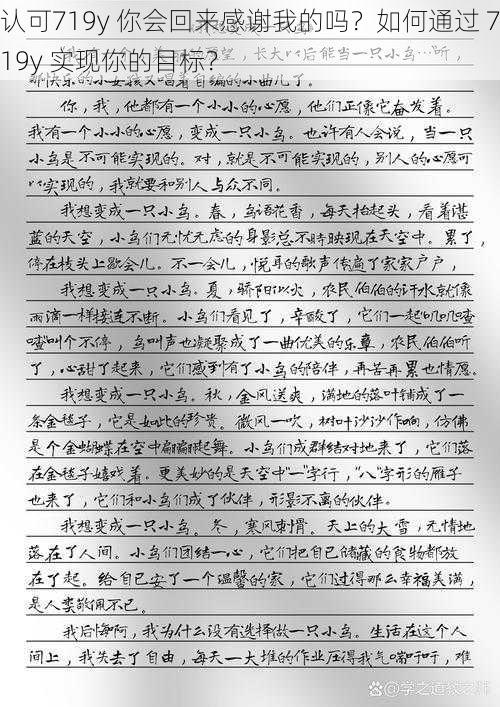 认可719y 你会回来感谢我的吗？如何通过 7
19y 实现你的目标？
望，长大以后能当一只小鸟…听，
那快乐的小女孩又唱着自编的小曲儿了。
你，我，他都有一个小小的心愿，他们正像它奋发着。
我有一个小小的心愿，变成一只小鸟。也许有人会说，当一只
小鸟是不可能实现的。对，就是不可能实现的，别人的心愿可
以实现的，我就要和别人与众不同。
我想变成一只小鸟。春，鸟语花香，每天抬起头，看着湛
蓝的天空，小鸟们无忧无虑的身影总不时映现在天空中。累了，
停在枝头上歇会儿。不一会儿，悦耳的歌声传遍了家家户户，
我想变成一只小鸟。夏，骄阳似火，农民伯伯的汗水就像
雨滴一样接连不断。小鸟们看见了，辛酸了，它们一起叽叽喳
喳叫个不停，鸟叫声也凝聚成了一曲优美的乐章，农民伯伯听
了，心甜了起来，它们感到有了小鸟的陪伴，再苦再累也情愿。
我想变成一只小鸟。秋，金风送爽，满地的落叶铺成了一
条金毯子，它是如此的珍贵。微风一吹，树叶沙沙作响，仿佛
是个金蝴蝶在空中翩翩起舞。小鸟们成群结对地来了，它们落
在金毯子嬉戏着。更美妙的是天空中"一"字行，"八"字形的雁子
也来了，它们和小鸟们成了伙伴，形影不离的伙伴。
我想变成一只小鸟。冬，寒风刺骨。天上的大雪，无情地
落在了人间。小鸟们团结一心，它们把自己储藏的食物都放
在了起。给自己安了一个温馨的家，它们过得那么幸福美满，
是人类敬佩不已。
我后悔啊，我为什么没有选择做一只小鸟。生活在这个人
间上，我失去了自由，每天一大堆的作业压得我气喘吁吁，难
百家号@学之道教之师